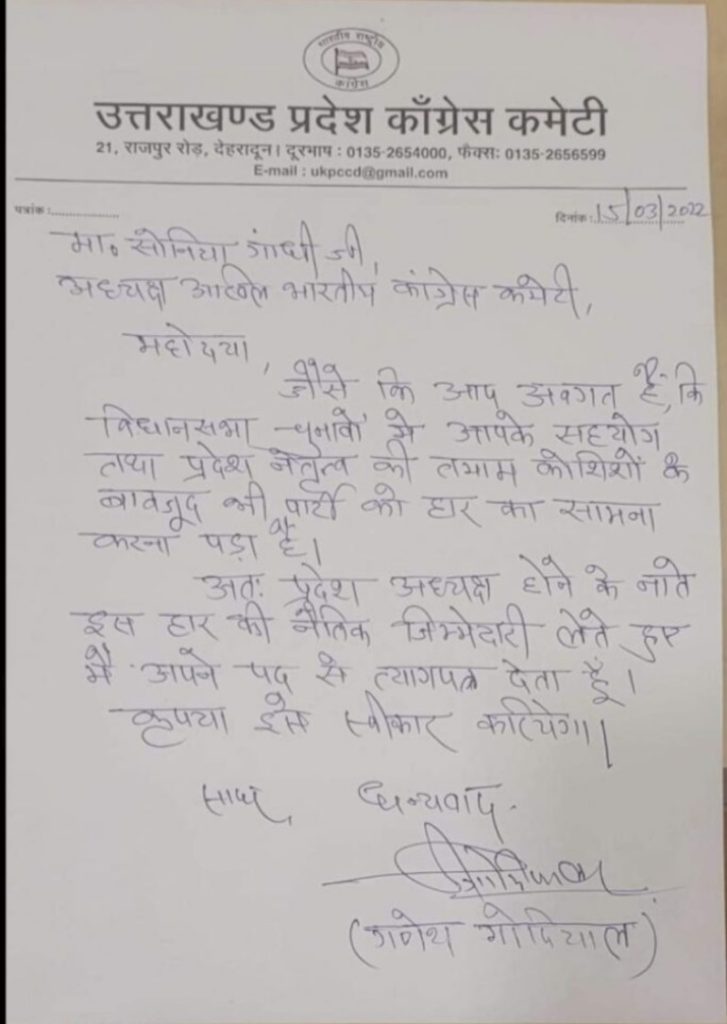 भारतीय राष्ट्रीय
कांग्रेस
उत्तराखण्ड प्रदेश काँग्रेस कमेटी
21, राजपुर रोड़, देहरादून। दूरभाष : 0135-2654000, फैक्सः 0135-2656599
E-mail : ukpccd@gmail.com
पत्रांक :....................
दिनांक : 15/03/2022
मा॰ सोनिया गांधी जी,
अध्यक्ष अखिल भारतीय कांग्रेस कमेटी,
महोदया,
जैसे कि आप अवगत हैं, कि
विधानसभा चुनावों में आपके सहयोग
तथा प्रदेश नेतृत्व की तमाम कोशिशों के
बावजूद भी पार्टी को हार का सामना
करना पड़ा है।
अतः प्रदेश अध्यक्ष होने के नाते
इस हार की नैतिक जिम्मेदारी लेते हुए
मैं अपने पद से त्यागपत्र देता हूँ।
कृपया इसे स्वीकार करियेगा।
सादर, धन्यवाद.
(गणेश गोदियाल)